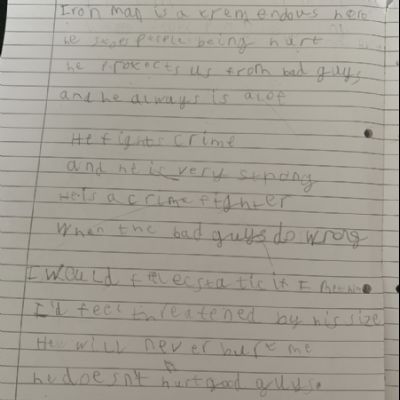 Iron man is a tremendous hero
he people being hurt
he protects us from bad guys
and he always is alof
He fights crime
and he is very strong
He is a crime fighter
When the bad guys do wrong
I would feel ecstatic if I
I'd feel threatened by his size
He will never hurt me
he doesn't hurt good guys.